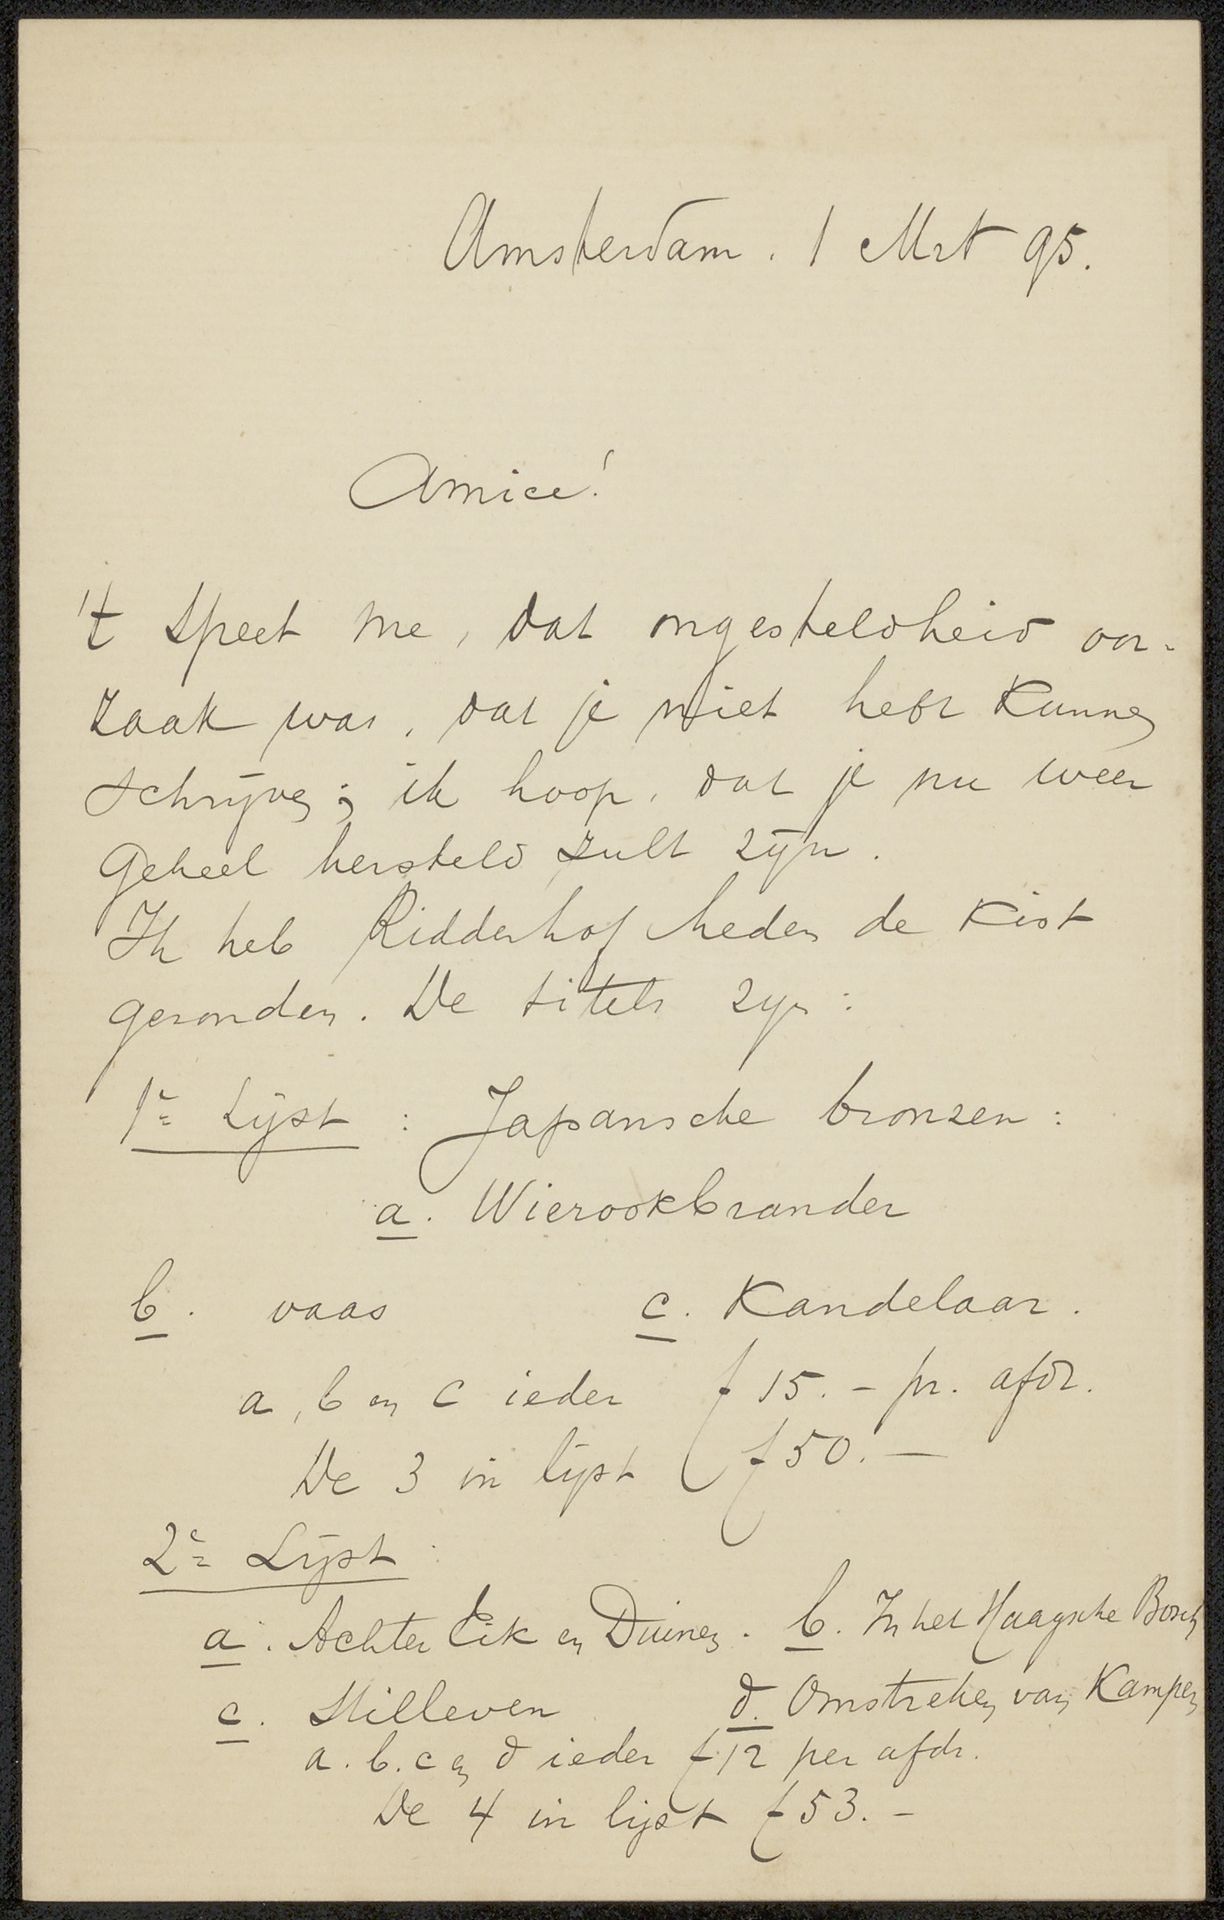 Amsterdam. 1 Mrt 95.
Amice!
't Speet me, dat ongesteldheid oor-
zaak was, dat je niet hebt kunnen
schrijven; ik hoop, dat je nu weer
geheel hersteld zult zijn.
Ik heb Ridderhof heden de kist
gezonden. De titels zijn:
1e Lijst : Japansche bronzen:
a. Wierookbrander
b. vaas c. Kandelaar.
a, b en c ieder f 15.- pr. afdr.
De 3 in lijst f 50.-
2e Lijst
a. Achter Eik en Duinen. b. In het Haagsche Bosch
c. Stilleven d. Omstreken van Kampen
a. b. c en d ieder f 12 per afdr.
De 4 in lijst f 53.-